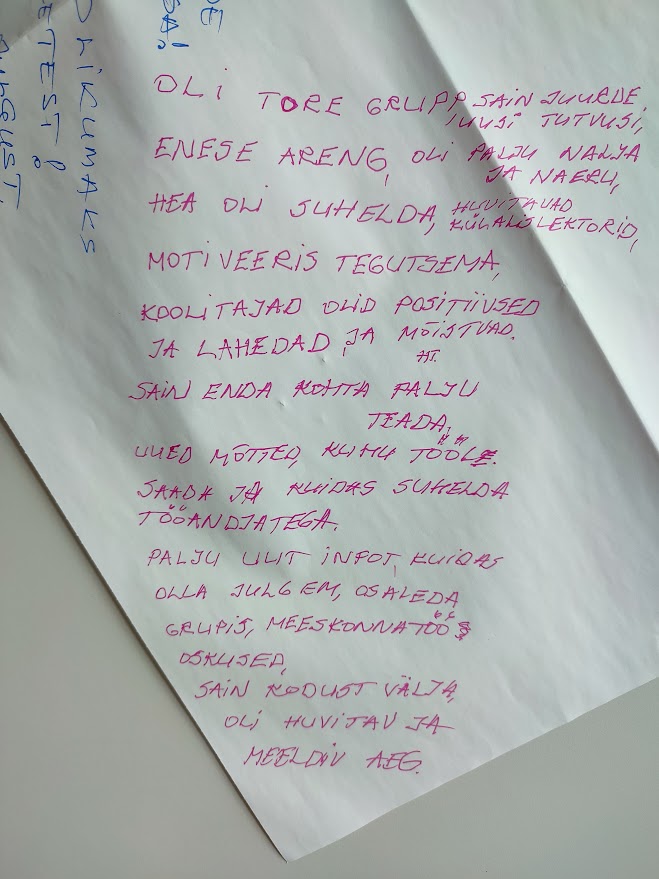 OLI TORE GRUPP, SAIN JUURDE
UUSI TUTVUSI,
ENESE ARENG, OLI PALJU NALJA
JA NAERU,
HEA OLI SUHELDA, HUVITAVAD
KÜLALISLEKTORID,
MOTIVEERIS TEGUTSEMA,
KOOLITAJAD OLID POSITIIVSED
JA LAHEDAD, JA MÕISTVAD.
SAIN ENDA KOHTA PALJU
TEADA,
UUED MÕTTED, KUHU TÖÖLE
SAADA JA KUIDAS SUHELDA
TÖÖANDJATEGA.
PALJU UUT INFOT, KUIDAS
OLLA JULGEM, OSALEDA
GRUPIS, MEESKONNATÖÖ
OSKUSED,
SAIN KODUST VÄLJA,
OLI HUVITAV JA
MEELDIV AEG.